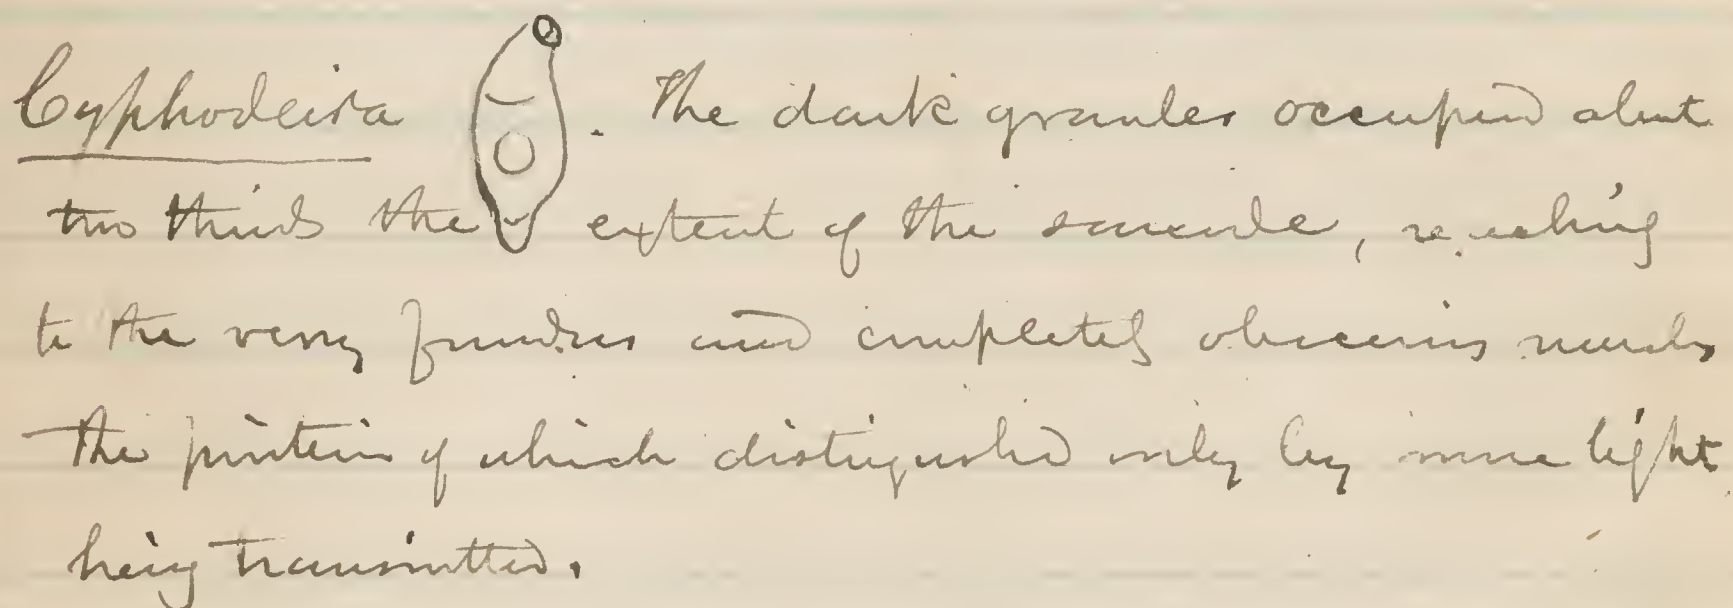 Cyphoderia. The dark granules occupied about
two thirds the extent of the sarcode, reaching
to the very fundus and completely obscuring nucleus
the position of which distinguished only by more light
being transmitted.